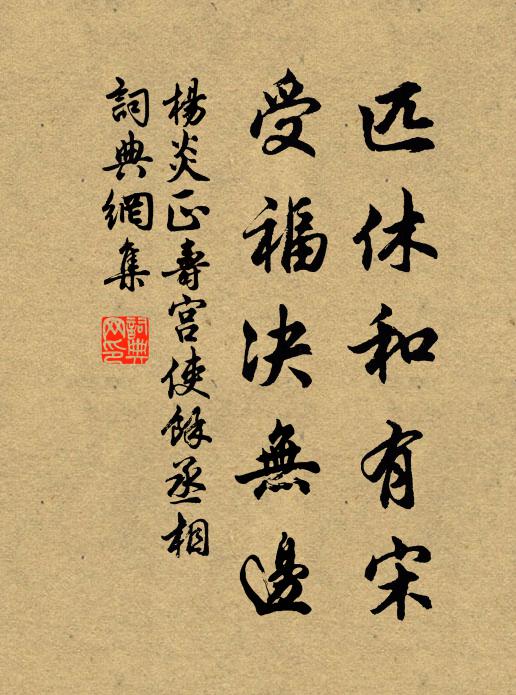 匹休和有宋
受福决無邊
楊炎正壽宮使餘丞相
詞典網集
詞典
网印